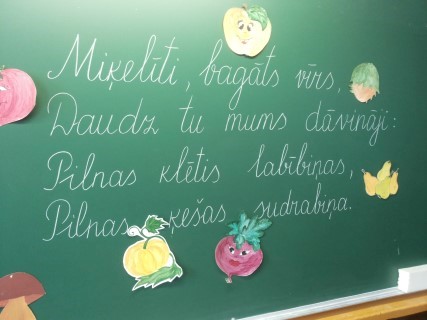 Miķelīti, bagāts vīrs,
Daudz tu mums dāvināji:
Pilnas klētis labībiņas,
Pilnas ķešas sudrabiņa.